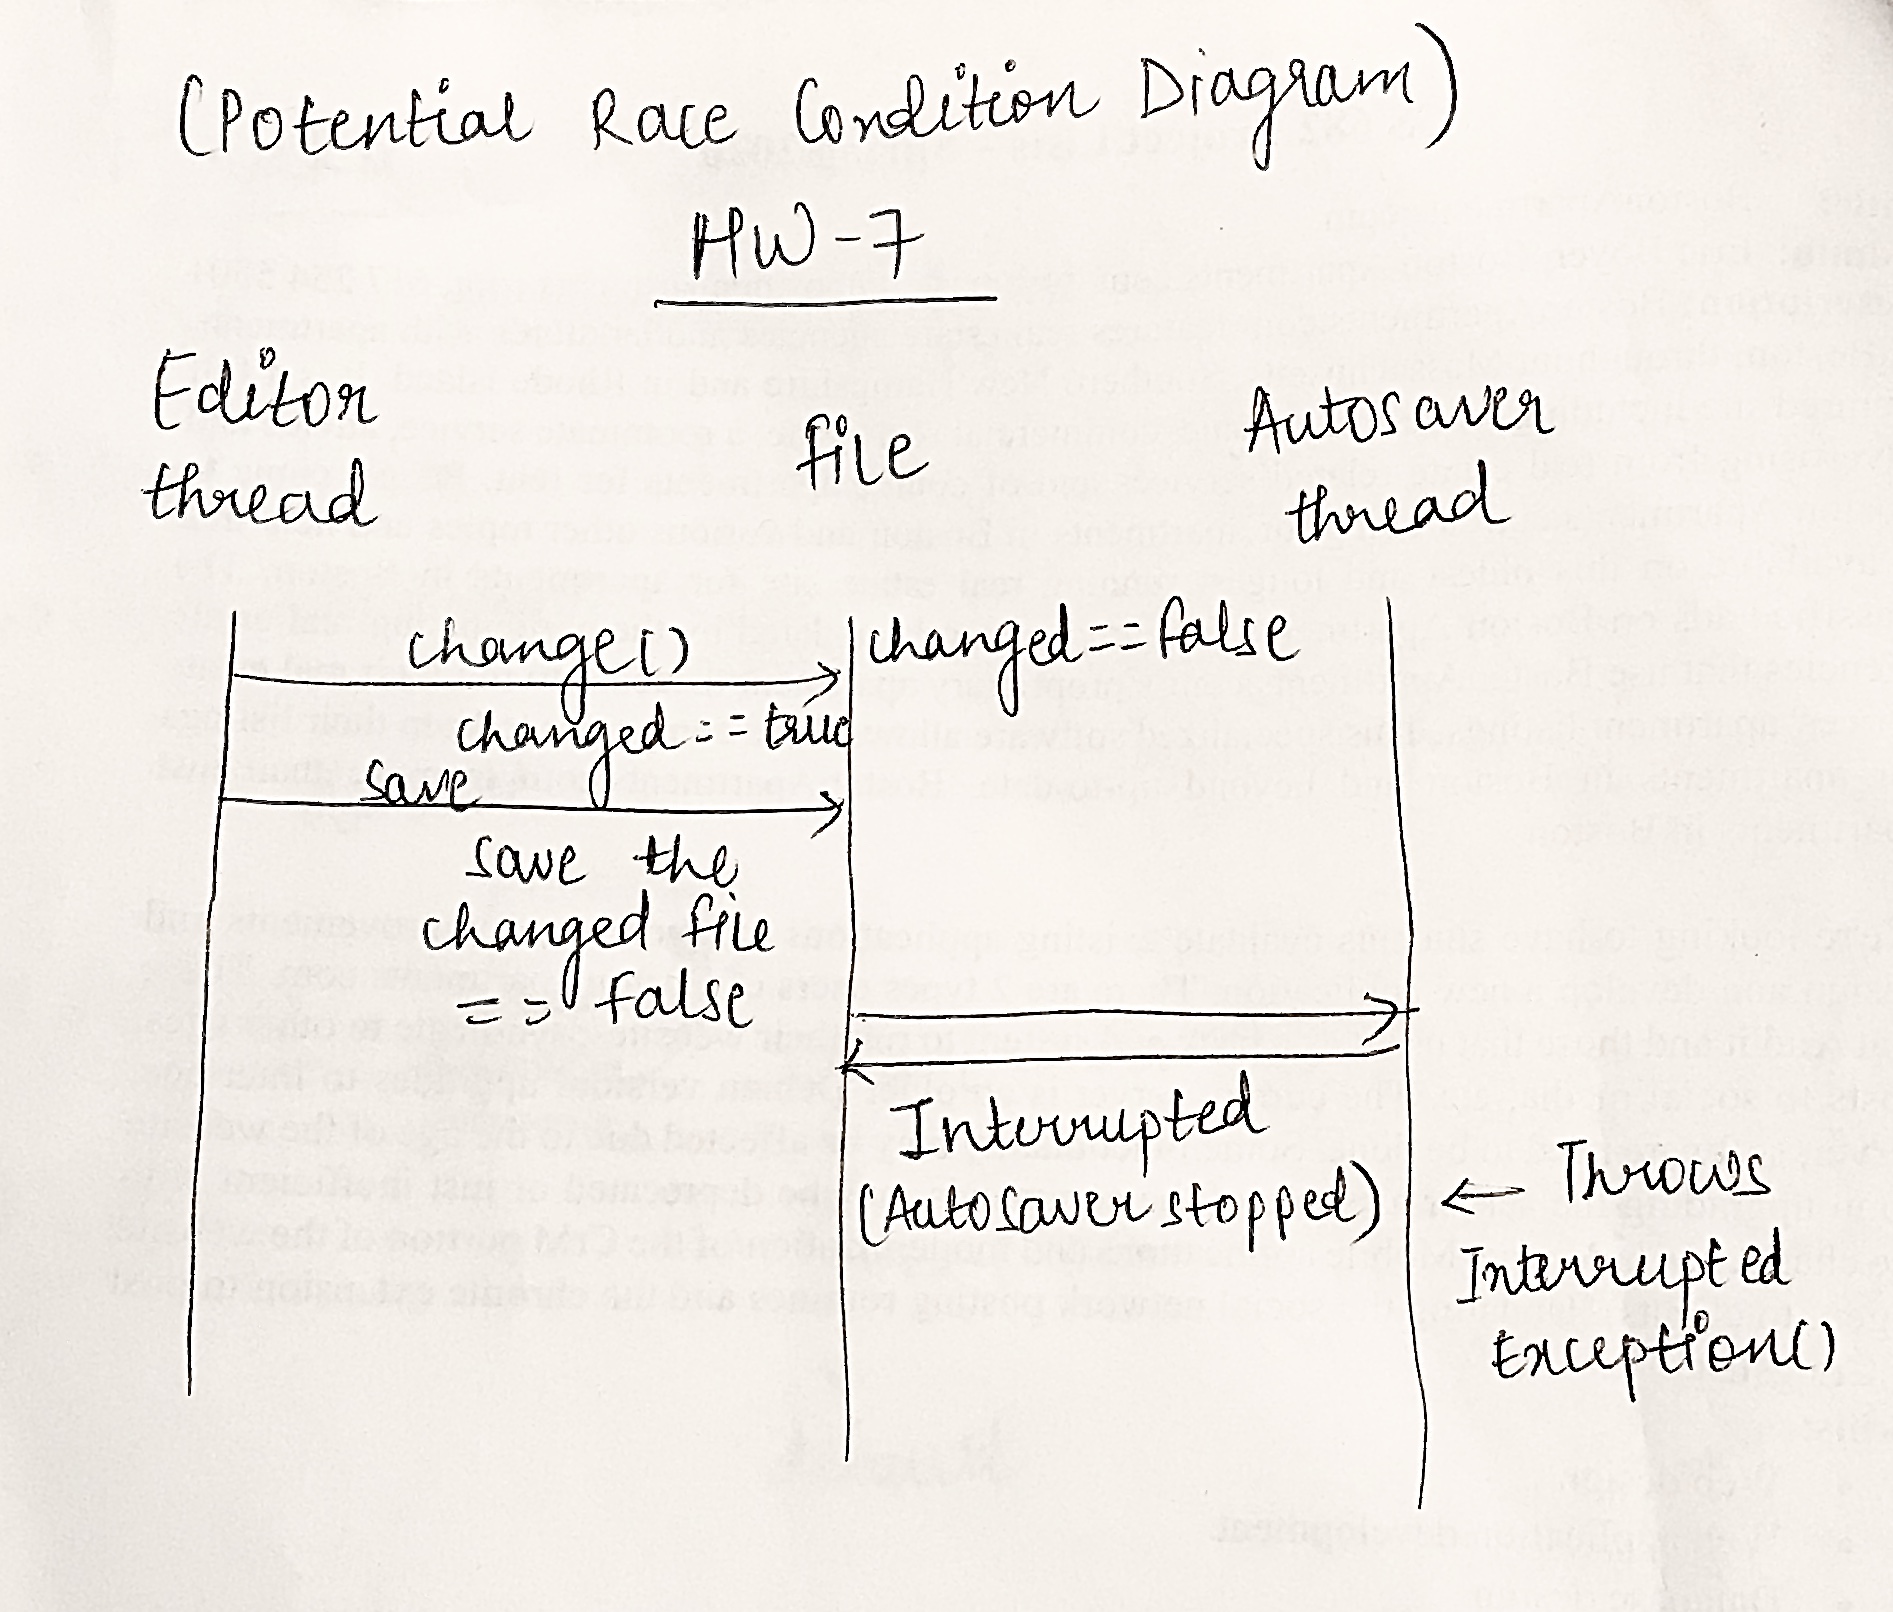 (Potential Race Condition Diagram)
HW-7
Editor
thread
file
Autosaver
thread
change()
changed==false
changed==true
save
save the
changed file
== false
Interrupted
(Autosaver stopped)
← Throws
Interrupted
Exception()